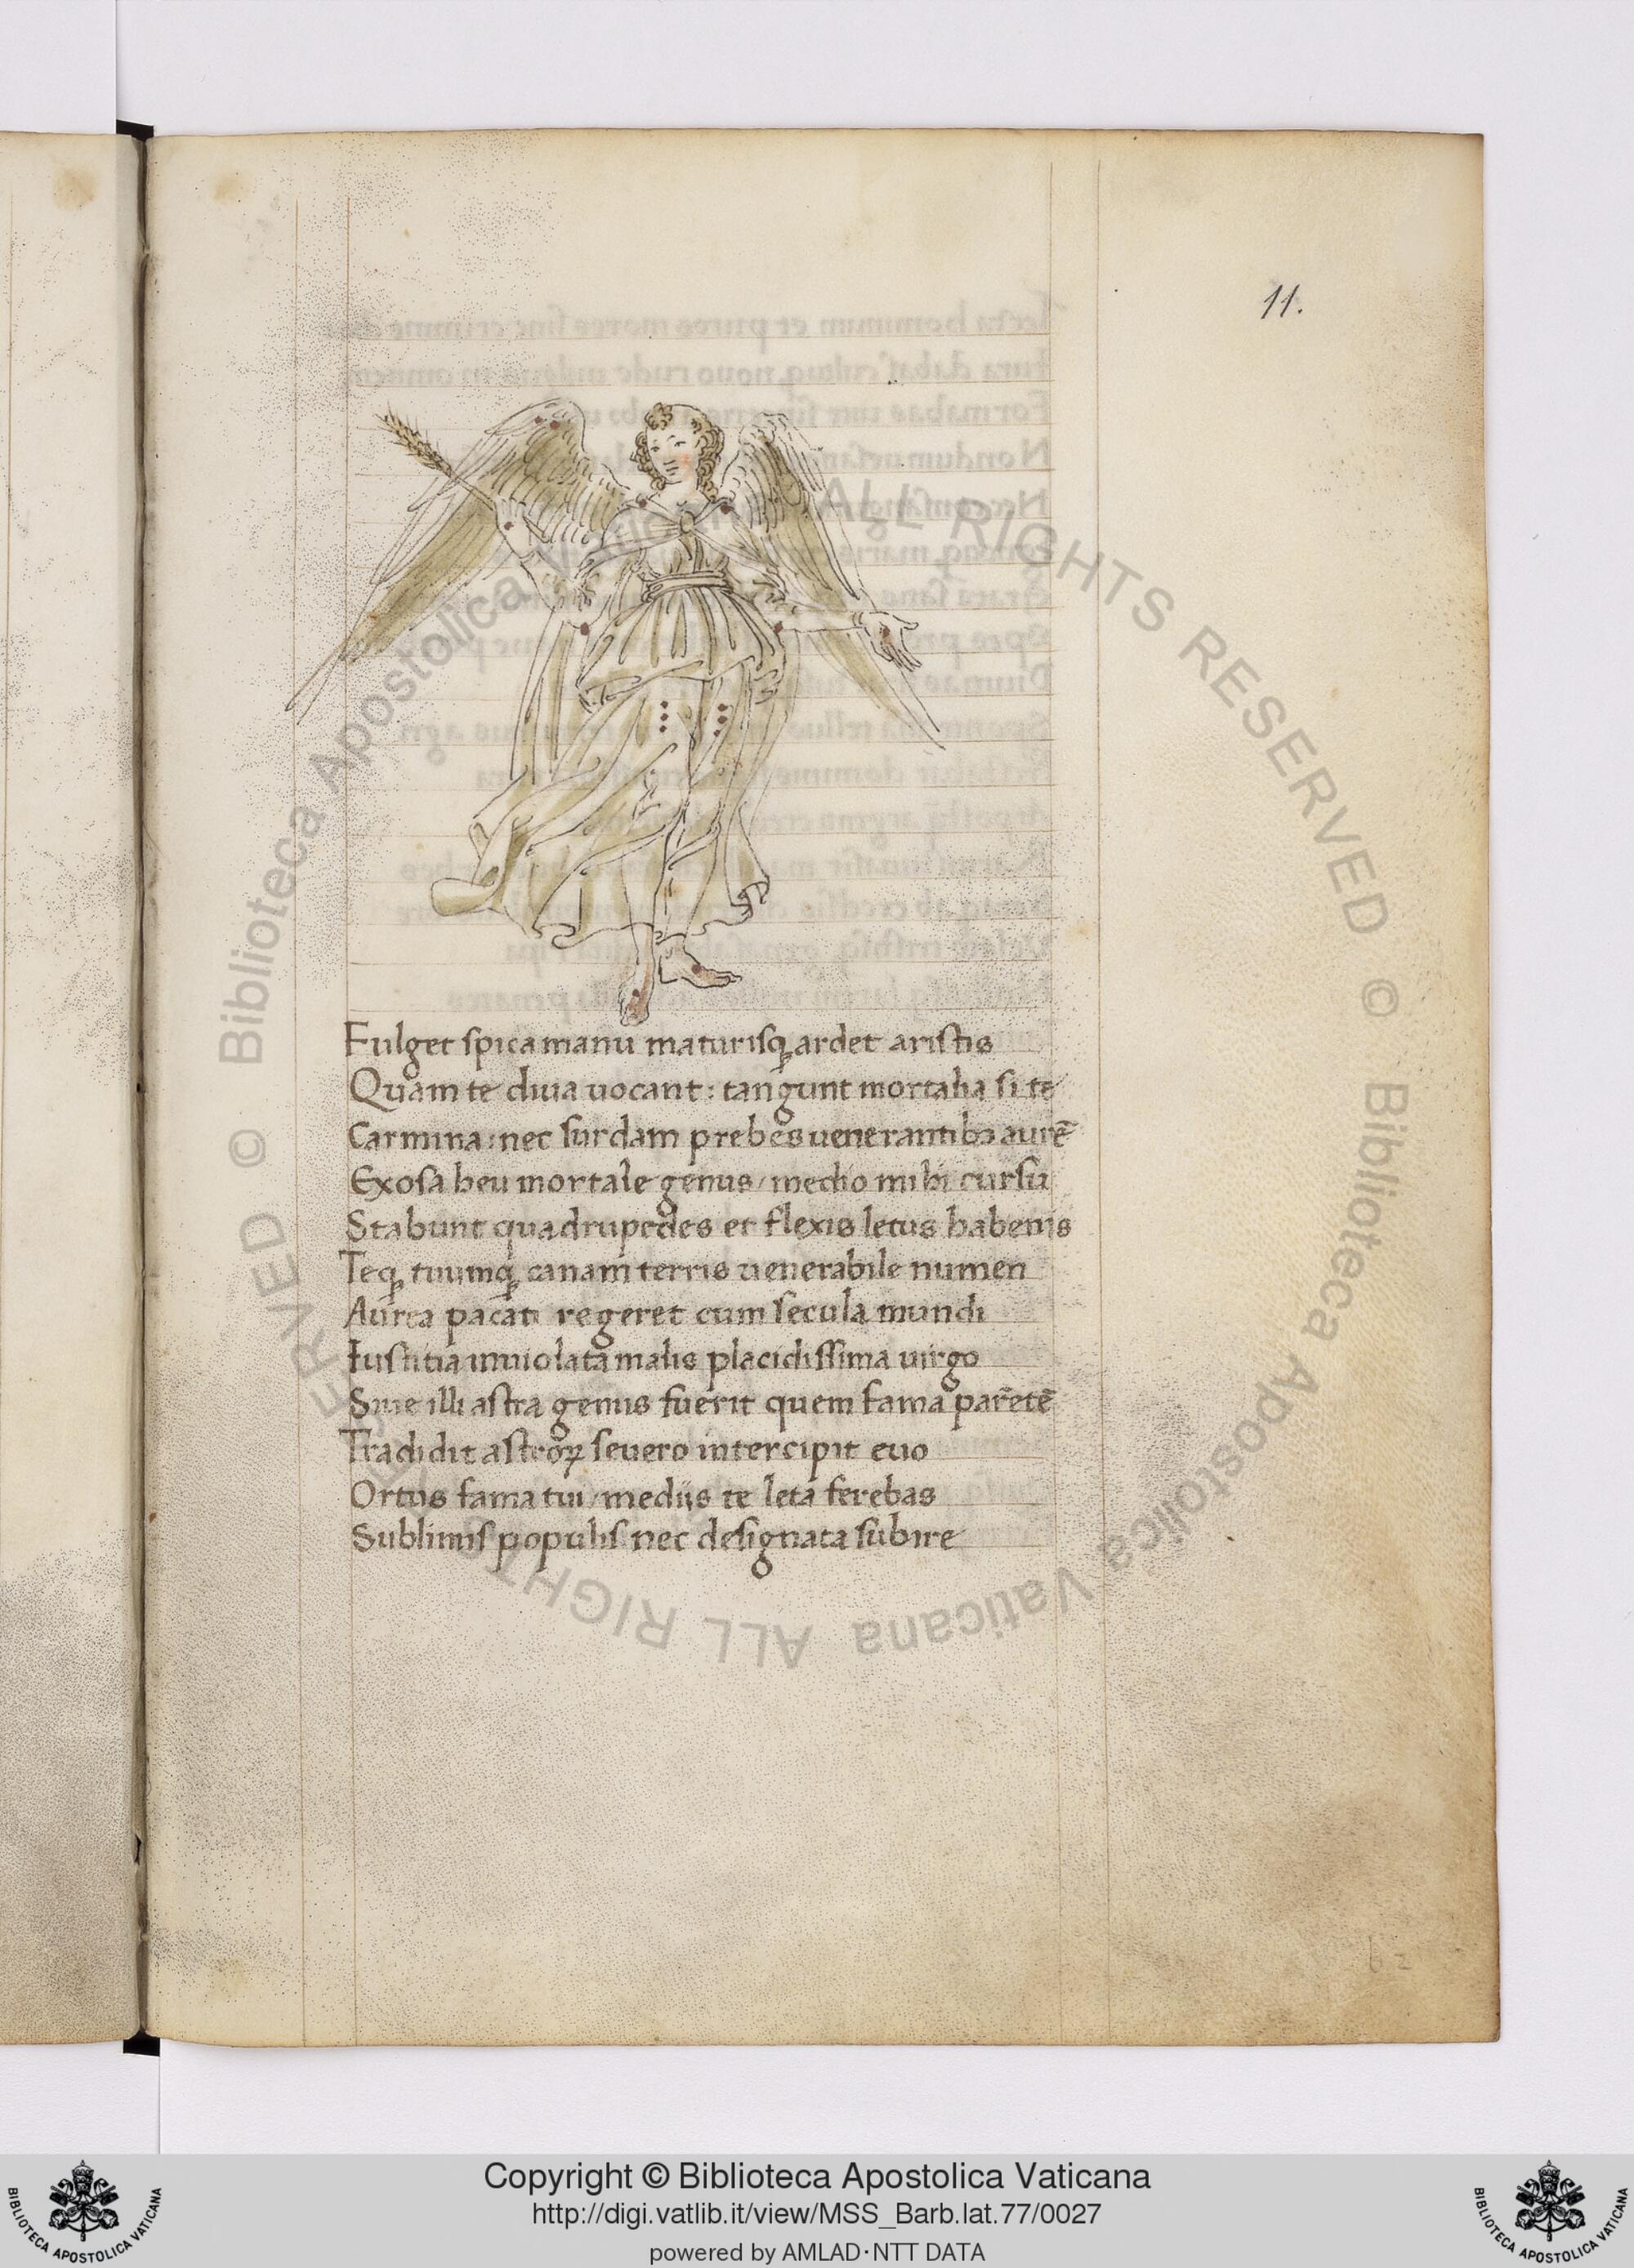 11.
Fulget spica manu maturisq ardet aristis
Quam te diua uocant: tangunt mortalia si te
Carmina: nec surdam prebes uenerantibꝫ aurē
Exosa heu mortale genus, medio mihi cursu
Stabunt quadrupedes et flexis letus habenis
Teq tuumq canam terris uenerabile numen
Aurea pacati regeret cum secula mundi
Iustitia inuiolata malis placidissima uirgo
Siue illi astra genus fuerit quem fama parētē
Tradidit astroꝝ seuero intercipit euo
Ortus fama tui, mediis te leta ferebas
Sublimis populis nec designata subire
b 2
Copyright © Biblioteca Apostolica Vaticana
http://digi.vatlib.it/view/MSS_Barb.lat.77/0027
powered by AMLAD·NTT DATA
BIBLIOTECA APOSTOLICA VATICANA
BIBLIOTECA APOSTOLICA VATICANA
© Biblioteca Apostolica Vaticana ALL RIGHTS RESERVED © Biblioteca Apostolica Vaticana ALL RIGHTS RESERVED